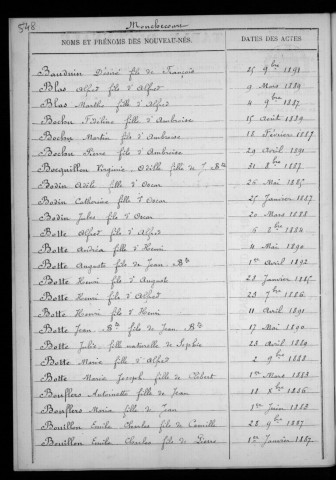 548
Monchecourt
NOMS ET PRÉNOMS DES NOUVEAU-NÉS. DATES DES ACTES
Bauduin Désiré fils de François 25 9bre 1891
Blas Alfred fils d'Alfred 9 Mars 1889
Blas Marthe fille d'Alfred 4 9bre 1887
Bochu fille d'Ambroise 15 Avril 1889
Bochu Martin fils d'Ambroise 18 Février 1887
Bochu Pierre fils d'Ambroise 29 Avril 1891
Bocquillon Virginie Odille fille de J. Bte 31 8bre 1887
Bodin Adèle fille d'Oscar 26 Mai 1885
Bodin Catherine fille d'Oscar 25 Janvier 1887
Bodin Jules fils d'Oscar 20 Mars 1888
Botte Alfred fils d'Alfred 1884
Botte fille d'Henri 4 Mai 1890
Botte Auguste fils de Jean Bte 1er Avril 1892
Botte Henri fils d'Auguste 28 Janvier 1885
Botte Henri fils d'Alfred 23 7bre 1886
Botte Henri fils d'Henri 11 Avril 1891
Botte Jean Bte fils de Jean Bte 17 Mai 1890
Botte Julie fille naturelle de Sophie 23 Avril 1889
Botte Maria fille d'Alfred 2 9bre 1888
Botte Marie Joseph fille de 1er Mars 1883
Bouflers Antoinette fille de Jean 11 Xbre 1886
Bouflers Maria fille de Jean 1er Juin 1888
Bouillon Emile Charles fils de Camille 28 9bre 1887
Bouillon Emile Charles fils de Pierre 1er Janvier 1887